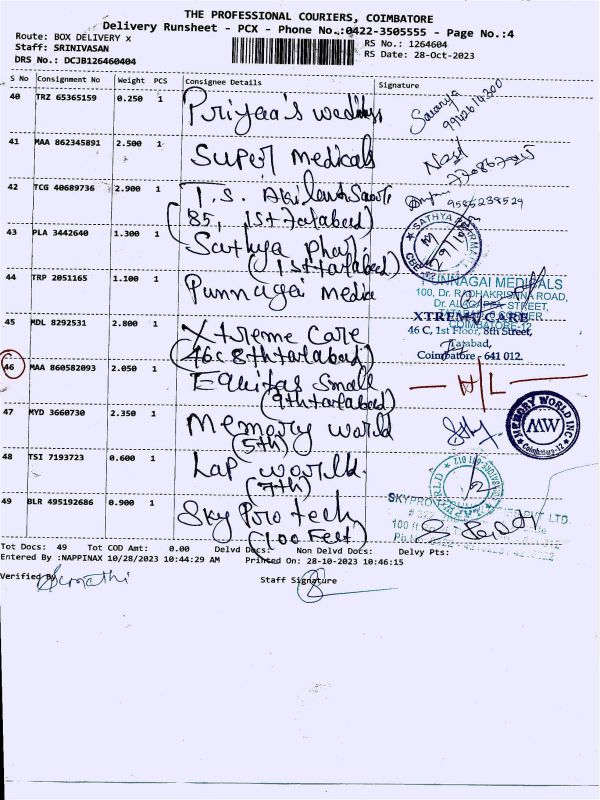 THE PROFESSIONAL COURIERS, COIMBATORE
Delivery Runsheet - PCX - Phone No.:0422-3505555 - Page No.:4
Route: BOX DELIVERY x
Staff: SRINIVASAN
DRS No.: DCJB126460404
RS No.: 1264604
RS Date: 28-Oct-2023
S No Consignment No Weight PCS Consignee Details Signature
40 TRZ 65365159 0.250 1 Priyaa's
41 MAA 862345891 2.500 1 Super Medicals
42 TCG 40689736 2.900 1 T.S.
9585238529
85, 1st Tatabad)
43 PLA 3442640 1.300 1 Sathya Phar.
(1st tatabad)
SATHYA
29/10/23
44 TRP 2051165 1.100 1 Punnagai Media
PUNNAGAI MEDICALS
100, Dr. RADHAKRISHNA ROAD,
Dr. ALAGAPPA STREET,
COIMBATORE-12
45 MDL 8292531 2.800 1 Xtreme Care
(46c 8th tatabad)
XTREME CARE
46 C, 1st Floor, 8th Street,
Tatabad,
Coimbatore - 641 012.
46 MAA 860582093 2.050 1 Equitas Small
(9th tatabad)
H/L
47 MYD 3660730 2.350 1 Memory world
(5th)
MEMORY WORLD INC
MW
Coimbatore-12
48 TSI 7193723 0.600 1 Lap world.
(7th)
LAP WORLD
49 BLR 495192686 0.900 1 Sky Pro tech
(100 Feet)
PVT LTD.
100 ft
Tot Docs: 49 Tot COD Amt: 0.00 Delvd Docs: Non Delvd Docs: Delvy Pts:
Entered By :NAPPINAX 10/28/2023 10:44:29 AM Printed On: 28-10-2023 10:46:15
Verified By
Staff Signature